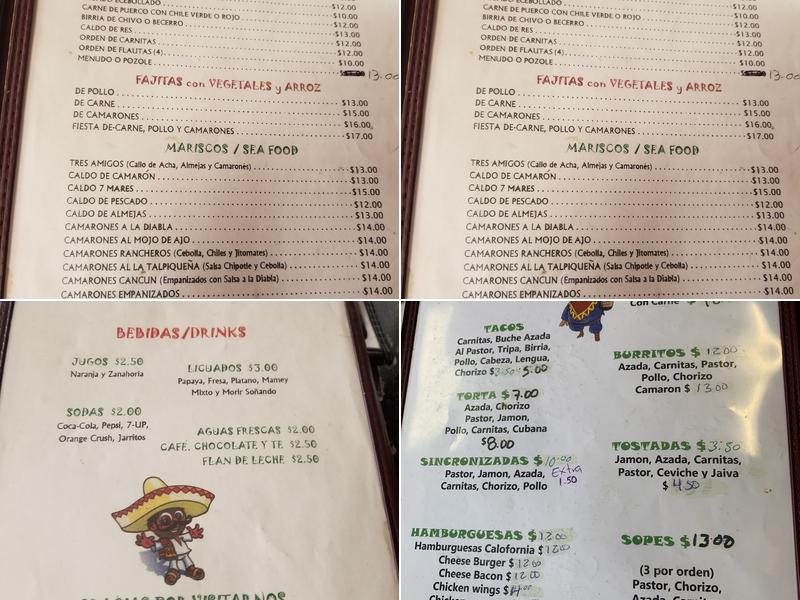 CARNE DE PUERCO CON CHILE VERDE O ROJO $10.00
BIRRIA DE CHIVO O BECERRO $12.00
CALDO DE RES $13.00
ORDEN DE CARNITAS $12.00
ORDEN DE FLAUTAS (4) $12.00
MENUDO O POZOLE $10.00
13.00
FAJITAS con VEGETALES y ARROZ
DE POLLO $13.00
DE CARNE $15.00
DE CAMARONES $16.00
FIESTA DE-CARNE, POLLO Y CAMARONES $17.00
MARISCOS / SEA FOOD
TRES AMIGOS (Callo de Acha, Almejas y Camarones) $13.00
CALDO DE CAMARÓN $13.00
CALDO 7 MARES $15.00
CALDO DE PESCADO $12.00
CALDO DE ALMEJAS $13.00
CAMARONES A LA DIABLA $14.00
CAMARONES AL MOJO DE AJO $14.00
CAMARONES RANCHEROS (Cebolla, Chiles y Jitomates) $14.00
CAMARONES AL LA TALPIQUEÑA (Salsa Chipotle y Cebolla) $14.00
CAMARONES CANCUN (Empanizados con Salsa a la Diabla) $14.00
CAMARONES EMPANIZADOS $14.00
CARNE DE PUERCO CON CHILE VERDE O ROJO $10.00
BIRRIA DE CHIVO O BECERRO $12.00
CALDO DE RES $13.00
ORDEN DE CARNITAS $12.00
ORDEN DE FLAUTAS (4) $12.00
MENUDO O POZOLE $10.00
13.00
FAJITAS con VEGETALES y ARROZ
DE POLLO $13.00
DE CARNE $15.00
DE CAMARONES $16.00
FIESTA DE-CARNE, POLLO Y CAMARONES $17.00
MARISCOS / SEA FOOD
TRES AMIGOS (Callo de Acha, Almejas y Camarones) $13.00
CALDO DE CAMARÓN $13.00
CALDO 7 MARES $15.00
CALDO DE PESCADO $12.00
CALDO DE ALMEJAS $13.00
CAMARONES A LA DIABLA $14.00
CAMARONES AL MOJO DE AJO $14.00
CAMARONES RANCHEROS (Cebolla, Chiles y Jitomates) $14.00
CAMARONES AL LA TALPIQUEÑA (Salsa Chipotle y Cebolla) $14.00
CAMARONES CANCUN (Empanizados con Salsa a la Diabla) $14.00
CAMARONES EMPANIZADOS $14.00
BEBIDAS/DRINKS
JUGOS $2.50
Naranja y Zanahoria
LICUADOS $3.00
Papaya, Fresa, Platano, Mamey
Mixto y Morir Soñando
SODAS $2.00
Coca-Cola, Pepsi, 7-UP,
Orange Crush, Jarritos
AGUAS FRESCAS $2.00
CAFÉ, CHOCOLATE Y TE $2.50
FLAN DE LECHE $2.50
Con Carne
TACOS
Carnitas, Buche Azada
Al Pastor, Tripa, Birria,
Pollo, Cabeza, Lengua,
Chorizo $3.50 5.00
TORTA $7.00
Azada, Chorizo
Pastor, Jamon,
Pollo, Carnitas, Cubana
$8.00
SINCRONIZADAS $10.00
Pastor, Jamon, Azada, Extra
Carnitas, Chorizo, Pollo 1.50
HAMBURGUESAS $12.00
Hamburguesas Calofornia $12.00
Cheese Burger $12.00
Cheese Bacon $12.00
Chicken wings $
BURRITOS $12.00
Azada, Carnitas, Pastor,
Pollo, Chorizo
Camaron $13.00
TOSTADAS $3.50
Jamon, Azada, Carnitas,
Pastor, Ceviche y Jaiva
$4.50
SOPES $13.00
(3 por orden)
Pastor, Chorizo,